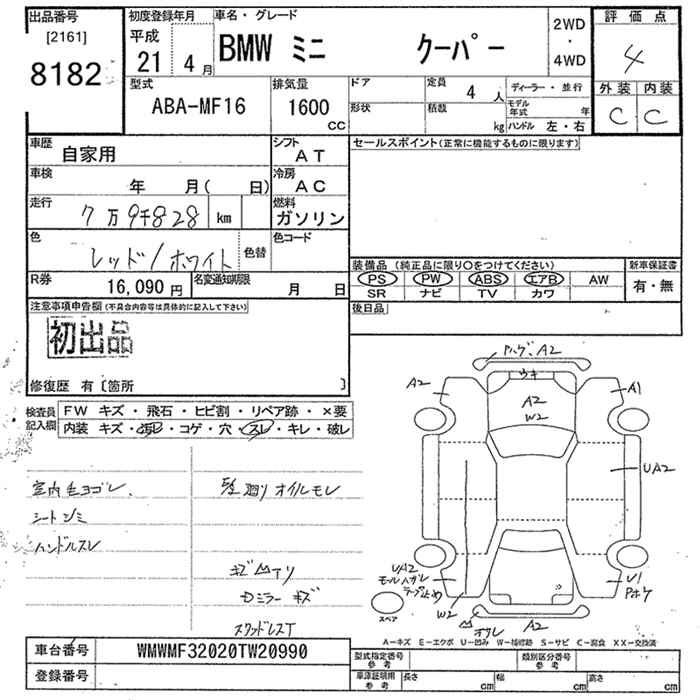 出品番号 初度登録年月 車名・グレード 評価点
[2161]
8182
平成
21 4月
BMW ミニ クーパー
2WD
・
4WD
4
型式
ABA-MF16
排気量
1600
CC
ドア
定員 4人
ディーラー・並行
形状
積載 kg
モデル年式 年
ハンドル 左・右
外装 内装
C C
車歴
自家用
シフト
AT
セールスポイント(正常に機能するものに限ります)
車検 年 月( 日)
冷房
AC
走行
7万9千828 km
燃料
ガソリン
色
レッド/ホワイト
色替
色コード
装備品(純正品に限り○をつけてください)
新車保証書
PS PW ABS エアB AW
SR ナビ TV カワ
有・無
R券
16,090円
名変通知期限
月 日
後日品
注意事項申告欄(不具合内容等は具体的に記入して下さい)
初出品
修復歴 有〔箇所 〕
検査員記入欄
FW キズ・飛石・ヒビ割・リペア跡・×要
内装 キズ・汚レ・コゲ・穴・スレ・キレ・破レ
室内モヨゴレ
シートシミ
ハンドルスレ
廻りオイルモレ
ミラー キズ
スタッドレスT
A2
A2
A1
ウキ
A2
W2
UA2
UA2
モールハガレ
テープ止め
U1
W2
A2
スペア
A-キズ E-エクボ U-凹み W-補修跡 S-サビ C-腐食 XX-交換済
車台番号
WMWMF32020TW20990
登録番号
型式指定番号
参考
類別区分番号
参考
車庫証明用
参考
長さ cm
幅 cm
高さ cm